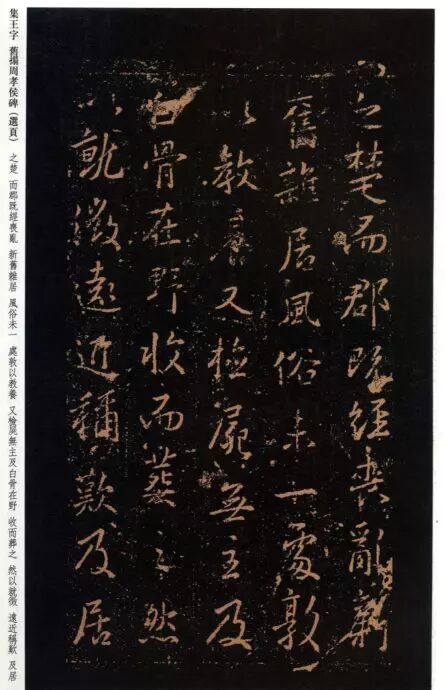 之楚而郡既經喪亂新
舊雜居風俗未一處敦
以教養又檢屍無主及
白骨在野收而葬之然
以就徵遠近稱歎及居
集王字 舊搨周孝侯碑(選頁) 之楚 而郡既經喪亂 新舊雜居 風俗未一 處敦以教養 又檢屍無主及白骨在野 收而葬之 然以就徵 遠近稱歎 及居